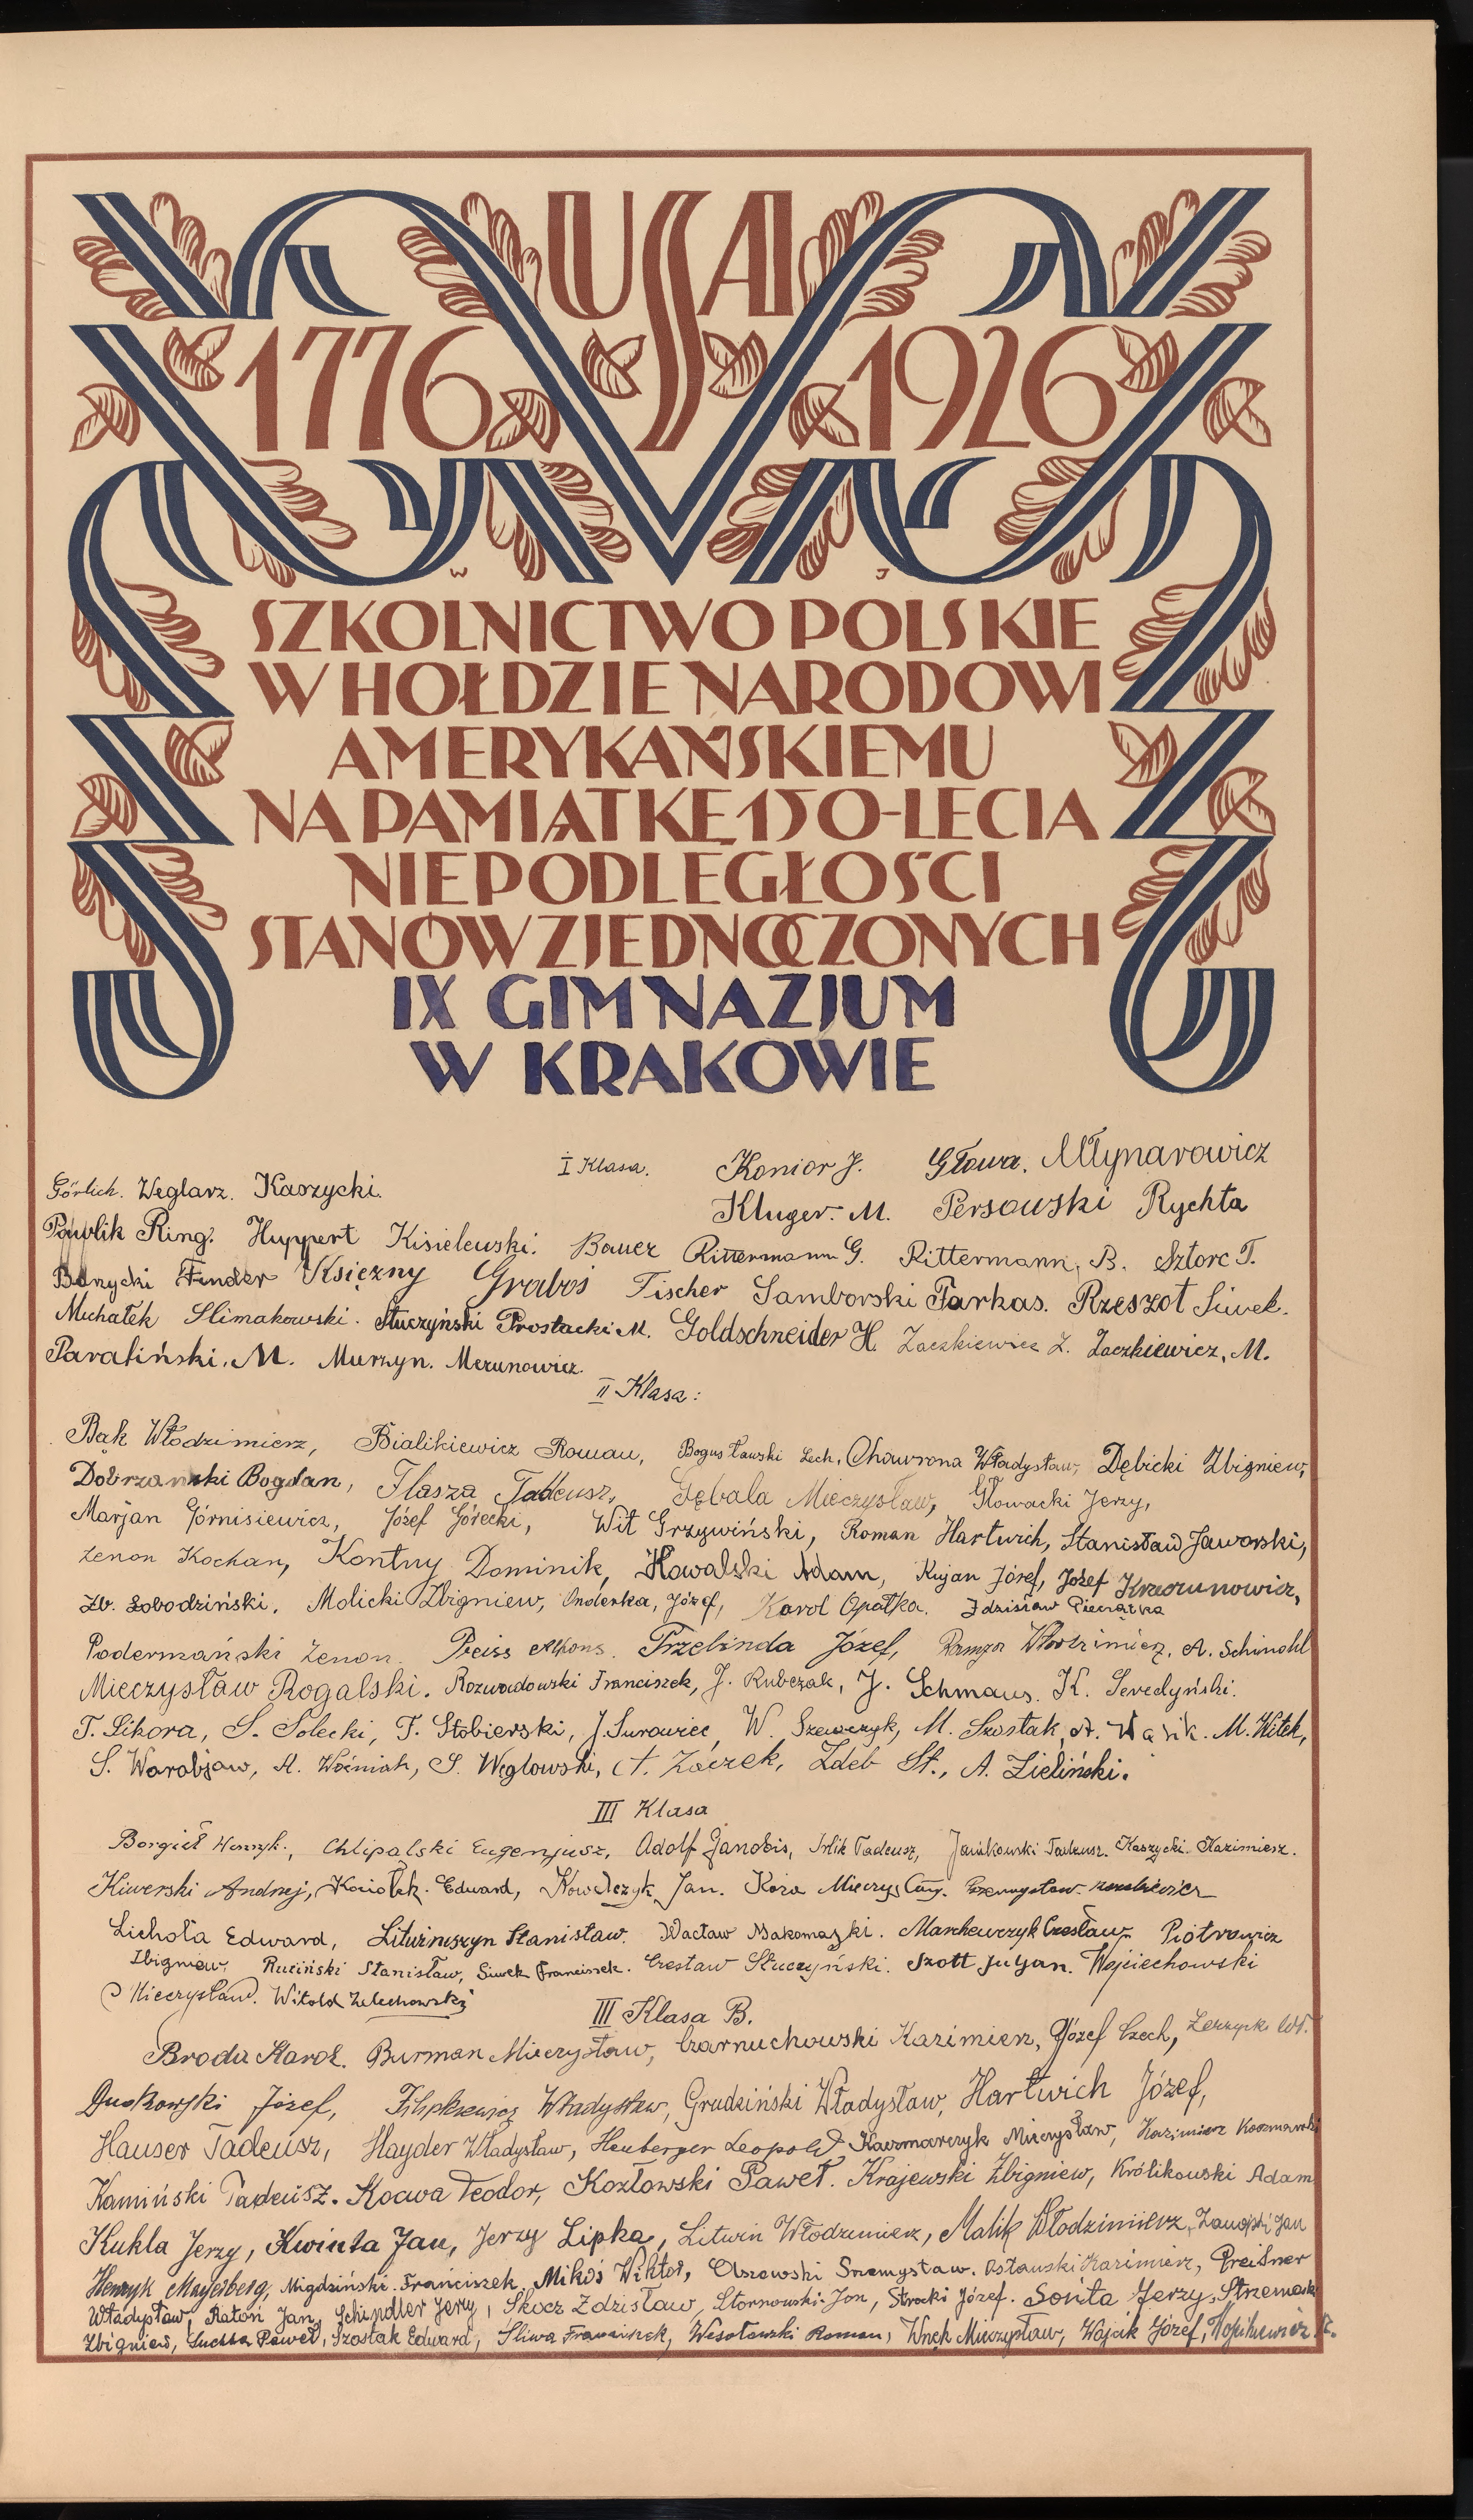 USA
1776 1926
W J
SZKOLNICTWO POLSKIE
W HOŁDZIE NARODOWI
AMERYKAŃSKIEMU
NA PAMIĄTKĘ 150-LECIA
NIEPODLEGŁOŚCI
STANÓW ZJEDNOCZONYCH
IX GIMNAZJUM
W KRAKOWIE
I Klasa. Konior J. Głowa. Młynarowicz
Görlich. Weglarz. Kaszycki. Kluger. M. Persowski Rychta
Pawlik Ring. Huppert Kisielewski. Bauer Rittermann G. Rittermann, B. Sztorc T.
Finder Księzny Graboś Fischer Samborski Farkas. Rzeszot Siwek.
Michałek Slimakowski. Stuczyński Prostacki M. Goldschneider H. Zaczkiewicz Z. Zaczkiewicz, M.
Paraliński. M. Murzyn. Merunowicz.
II Klasa:
Bąk Włodzimierz, Bialikiewicz Roman, Bogusławski Lech, Chawrona Władysław, Dębicki Zbigniew,
Dobrzański Bogdan, Flasza Tadeusz, Gębala Mieczysław, Głowacki Jerzy,
Marjan Górnisiewicz, Józef Górecki, Wit Grzywiński, Roman Hartwich, Stanisław Jaworski,
Zenon Kochan, Kontny Dominik, Kowalski Adam, Kujan Józef, Józef Krzeczunowicz,
Zb. Łobodziński, Molicki Zbigniew, Onderka, Józef, Karol Opałka. Zdzisław Pieczątka
Podermański Zenon. Preiss Alfons. Przebinda Józef, Ramza Włodzimierz, A. Schindhl
Mieczysław Rogalski. Rozwadowski Franciszek, J. Rubczak, J. Schmaus. K. Seredyński.
T. Sikora, S. Solecki, T. Stobierski, J. Surowiec, W. Szewczyk, M. Szostak, A. Wąsik. M. Witek,
S. Worobjow, A. Woźniak, S. Węglowski, A. Zaczek, Zdeb St., A. Zieliński.
III Klasa
Borgieł Henryk., Chlipalski Eugenjusz, Adolf Janobis, Irlik Tadeusz, Jańkowski Tadeusz. Kaszycki Kazimierz.
Kiwerski Andrzej, Kociołek. Edward, Kowalczyk Jan. Koza Mieczysław. Przemysław
Lichoła Edward, Lituiniszyn Stanisław. Wacław Makomaski. Marchewczyk Czesław. Piotrowicz
Zbigniew, Ruciński Stanisław, Siwek Franciszek. Czesław Stuczyński. Szott Juljan. Wojciechowski
Mieczysław. Witold Żelechowski
III Klasa B.
Broda Karol. Burman Mieczysław, Czarnuchowski Kazimierz, Józef Czech,
Duskowski Józef, Filipkiewicz Władysław, Grudziński Władysław, Hartwich Józef,
Hauser Tadeusz, Hayder Władysław, Heuberger Leopold Kaczmarczyk Mieczysław, Kazimierz Kaczmarski
Kamiński Tadeusz. Kocwa Teodor, Kozłowski Paweł. Krajewski Zbigniew, Królikowski Adam
Kukla Jerzy, Kwinta Jan, Jerzy Lipka, Litwin Włodzimierz, Malik Włodzimierz, Jan
Henryk Mayerberg, Migdziński Franciszek, Mikoś Wiktor, Olszowski Przemysław. Osławski Kazimierz, Preisner
Władysław, Ratoń Jan, Schindler Jerzy, Skocz Zdzisław, Stornowski Jan, Strocki Józef. Sonta Jerzy, Strzemecki
Zbigniew, Suchta Paweł, Szostak Edward, Śliwa Franciszek, Wesołowski Roman, Wnęk Mieczysław, Wójcik Józef,